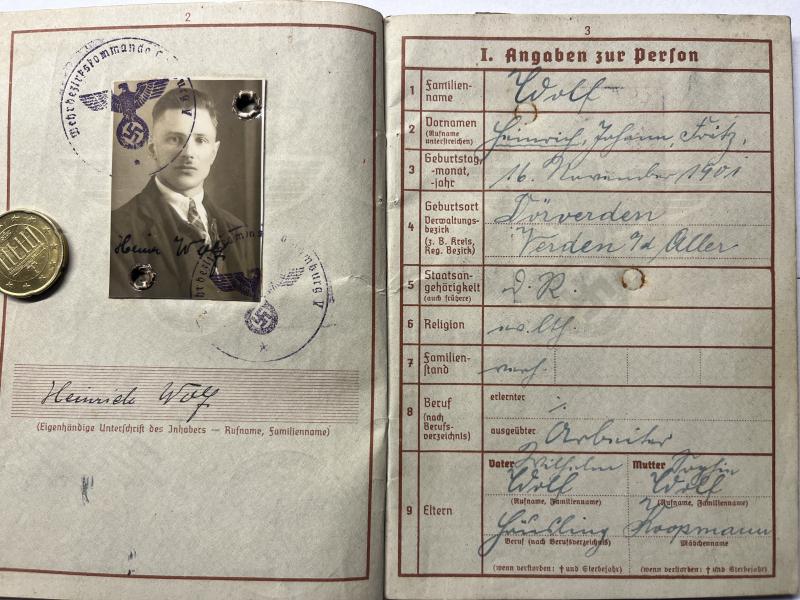 2
Wehrbezirkskommando
Heinr Wolf
Heinrich Wolf
(Eigenhändige Unterschrift des Inhabers — Rufname, Familienname)
3
I. Angaben zur Person
1 Familien-
name
Wolf
2 Vornamen
(Rufname
unterstreichen)
Heinrich, Johann, Fritz.
3 Geburtstag,
-monat,
-jahr
16. November 1901
4 Geburtsort
Verwaltungs-
bezirk
(z. B. Kreis,
Reg. Bezirk)
Dörverden
Verden a/d Aller
5 Staatsan-
gehörigkeit
(auch frühere)
D. R.
6 Religion
ev. lth.
7 Familien-
stand
verh.
8 Beruf
(nach
Berufs-
verzeichnis)
erlernter
%
ausgeübter Arbeiter
9 Eltern
Vater Wilhelm
Wolf
(Rufname, Familienname)
Häusling
Beruf (nach Berufsverzeichnis)
(wenn verstorben: † und Sterbejahr)
Mutter Sophie
Wolf
(Rufname, Familienname)
Koopmann
Mädchenname
(wenn verstorben: † und Sterbejahr)